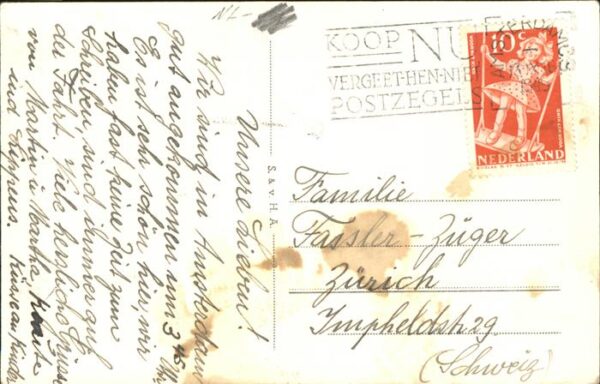 NL-
Unsere Lieben!
Wir sind in Amsterdam
gut angekommen um 3 45 Uhr
Es ist sehr schön hier, wir
haben fast keine Zeit zum
Schreiben, sind immer auf
der Fahrt. Viele herzliche Grüsse
von Martin u. Martha
und
S. & v. H. A.
KOOP NU
VERGEET-HEN-NIE
POSTZEGELS
AMSTERDAM
10 c
NEDERLAND
Familie
Fassler-Züger
Zürich
Impfeldstr. 29
(Schweiz)